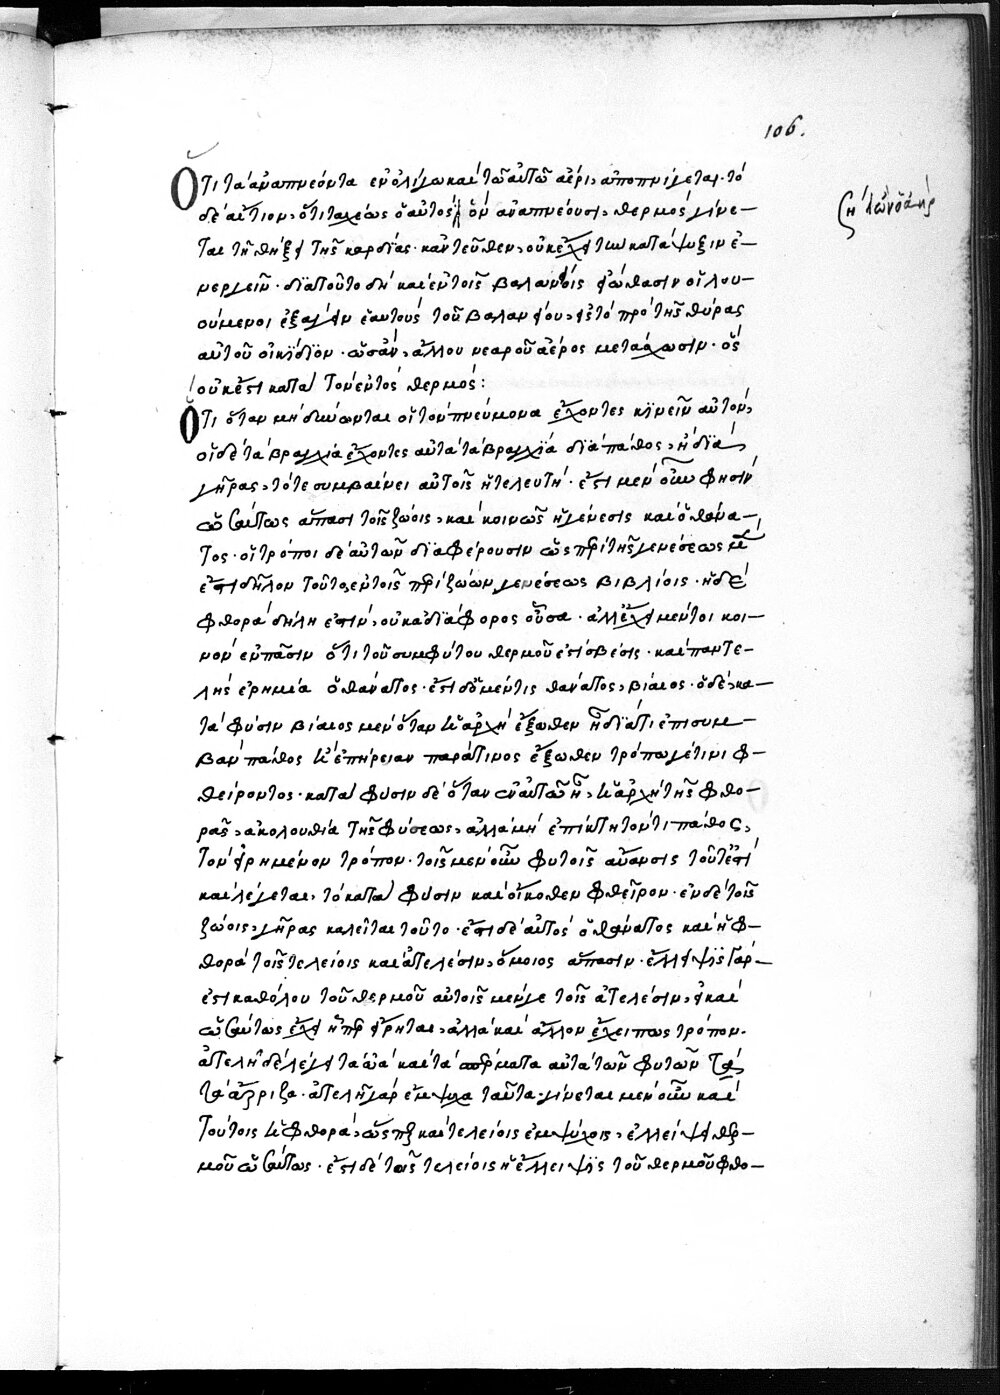 106.
Ὅτι τὰ ἀναπνέοντα ἐν ὀλίγω καὶ τῶ αὐτῶ ἀέρι, ἀποπνίγεται· τὸ
δὲ αἴτιον, ὅτι ταχέως ὁ αὐτὸς ὃν ἀναπνέουσι, θερμὸς γίνε-
ται τῆ θήξει τῆς καρδίας· κἀντεῦθεν, οὐκ ἔχει τὴν κατάψυξιν ἐ-
νεργεῖν· διατοῦτο δὴ καὶ ἐν τοῖς βαλανείοις οἱ λου-
ούμενοι ἐξαγειν ἑαυτοὺς τοῦ βαλανείου, εἰς τὸ πρὸ τῆς θύρας
αὐτοῦ οἰκίδιον· ὡσὰν, ἄλλου νεαροῦ ἀέρος μετάσχωσιν· ὃς
οὐκέστι κατὰ τὸν ἐντὸς θερμός:
Ὅτι ὅταν μὴ δύνωνται οἱ τὸν πνεύμονα ἔχοντες κινεῖν αὐτὸν,
οἱ δὲ τὰ βραγχία ἔχοντες αὐτὰ τὰ βραγχία διὰ πάθος, ἢ διὰ
γῆρας, τότε συμβαίνει αὐτοῖς ἡ τελευτή· ἔστι μὲν οὖν φησὶν
ὡσαύτως ἅπασι τοῖς ζώοις, καὶ κοινῶς ἡ γένεσις καὶ ὁ θάνα-
τος· οἱ τρόποι δὲ αὐτῶν διαφέρουσιν ὡς περὶ τῆς γενέσεως μὲν
ἔστι δῆλον τοῦτο, ἐν τοῖς περὶ ζώων γενέσεως βιβλίοις· ἡ δὲ
φθορὰ δήλη ἐστὶν, οὐκ ἀδιάφορος οὖσα· ἀλλ' ἔχει μέντοι κοι-
νὸν ἐν πᾶσιν ὅτι τοῦ συμφύτου θερμοῦ ἐστι σβέσις· καὶ παντε-
λὴς ἐρημία ὁ θάνατος· ἔστι δὲ μέντις θάνατος, βίαιος· ὁ δὲ, κα-
τὰ φύσιν βίαιος μὲν ὅταν ἡ ἀρχὴ ἔξωθεν ἢ διά τι ἐπισυμ-
βὰν πάθος ἢ ἐπήρειαν παρά τινος ἔξωθεν τρόπω γέ τινι φ-
θείροντος· κατὰ φύσιν δὲ ὅταν ἐν αὐτῶ ἦ, ἡ ἀρχὴ τῆς φθο-
ρᾶς, ἀκολουθία τῆς φύσεως, ἀλλὰ μὴ ἐπίκτητόν τι πάθος,
τὸν εἰρημένον τρόπον· τοῖς μὲν οὖν φυτοῖς αὔανσις τοῦτ' ἐστὶ
καὶ λέγεται, τὸ κατὰ φύσιν καὶ οἴκοθεν φθεῖρον· ἐν δὲ τοῖς
ζώοις, γῆρας καλεῖται τοῦτο· ἔστι δὲ αὐτὸς ὁ θάνατος καὶ ἡ φ-
θορὰ τοῖς τελείοις καὶ ἀτελέσιν, ὅμοιος ἅπασιν· ἔλλειψις γάρ-
ἐστι καθόλου τοῦ θερμοῦ αὐτοῖς μέν γε τοῖς ἀτελέσιν, εἰ καὶ
ὡσαύτως ἔχει ἧπερ εἴρηται, ἀλλὰ καὶ ἄλλον ἔχει πως τρόπον.
ἀτελῆ δὲ λέγει τὰ ὠὰ καὶ τὰ σπέρματα αὐτὰ τῶν φυτῶν
τὰ ἄρριζα· ἀτελῆ γὰρ ἔμψυχα ταῦτα· γίνεται μὲν οὖν καὶ
τούτοις ἡ φθορὰ, ὥσπερ καὶ τελείοις ἐμψύχοις, ἐλλείψει θερ-
μοῦ ὡσαύτως· ἔστι δὲ τοῖς τελείοις ἡ ἔλλειψις τοῦ θερμοῦ φθο-